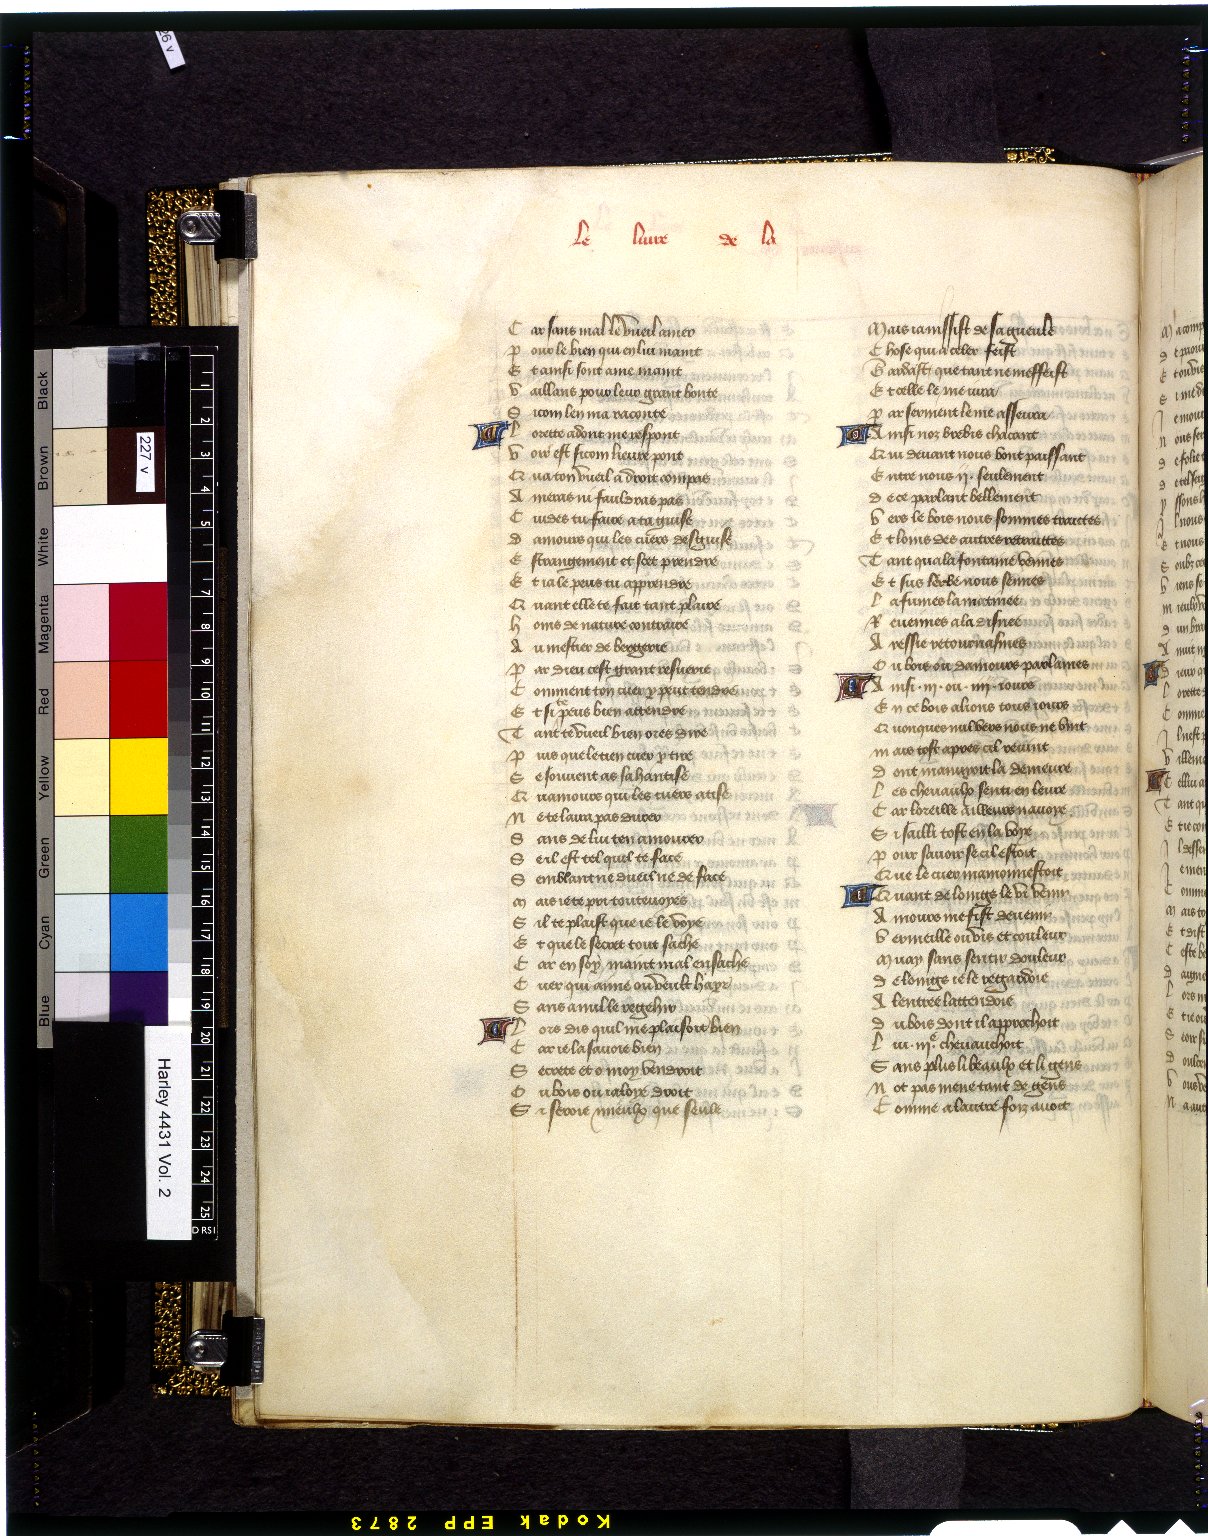 Le livre de la
Car sans mal le vueil amer
Pour le bien qui en lui maint
Et ainsi sont ame maint
Vaillans pour leur grant bonte
Si com len ma raconte
Lorette adont me respont
Voir est si com lieure pont
Qua ton vueil a droit compas
Ameras ni fauldras pas
Cuides tu faire a ta guise
Damours qui les cuers desguise
Estrangement et scet prendre
Et ia le peus tu apprendre
Quant elle te fait tant plaire
Homs de nature contraire
Au mestier de bergerie
Par dieu cest grant resuerie
Comment ton cuer y peut tendre
Et si te peus bien attendre
Tant te vueil bien ores dire
Puis que le tien cuer y tire
Se souuent as sa hantise
Quamours qui les cuers attise
Ne te laira pas durer
Sans de lui ten amourer
Seil est tel quil te face
Semblant ne dueil ne de face
Mais ie te pri toutteuoyes
Sil te plaist que ie le voye
Et que le secret tout sache
Car en soy maint mal ensache
Cuer qui aime ou veult hayr
Sans a nulle regehir
Lors dis quil me plaisoit bien
Car ie la sauoie bien
Secrete et o moy vendroit
Ou bois ou ialoye droit
Si seroie mieulx que seule
Mais ia nissist de sa gueule
Chose qui a celer feist
Gardast que tant ne meffeist
Et celle le me iura
Par serment le me asseura
Ainsi noz brebis chacant
Qui deuant nous vont paissant
Entre nous .ii. seulement
De ce parlant bellement
Vers le bois nous sommes traittes
Et loins des autres retraittes
Tant qua la fontaine venmes
Et sus lerbe nous seimes
La fumes la matinee
Reuenmes a la disnee
Aressie retournasmes
Ou bois ou damours parlames
Ainsi .iii. ou .iiii. iours
En ce bois alions tous iours
Quonques nul vers nous ne vint
Mais tost apres cil reuint
Dont manuyoit la demeure
Les cheuaulx senti en leure
Car loreille ailleurs nauoye
Si sailli tost en la voye
Pour sauoir se cil estoit
Que le cuer mamonnestoit
Quant de loings le vi venir
Amours me fist deuenir
Vermeille ou vis et couleur
Muay sans sentir douleur
De loings ie le regardoie
A lentree lattendoie
Du bois dont il approchoit
Lui .iiie. cheuauchoit
Sans plus li beaulx et li gens
Not pas mene tant de gens
Comme a lautre foiz auoit
227 v
Harley 4431 Vol. 2
Black
Brown
White
Magenta
Red
Yellow
Green
Cyan
Blue
Kodak EPP 2873